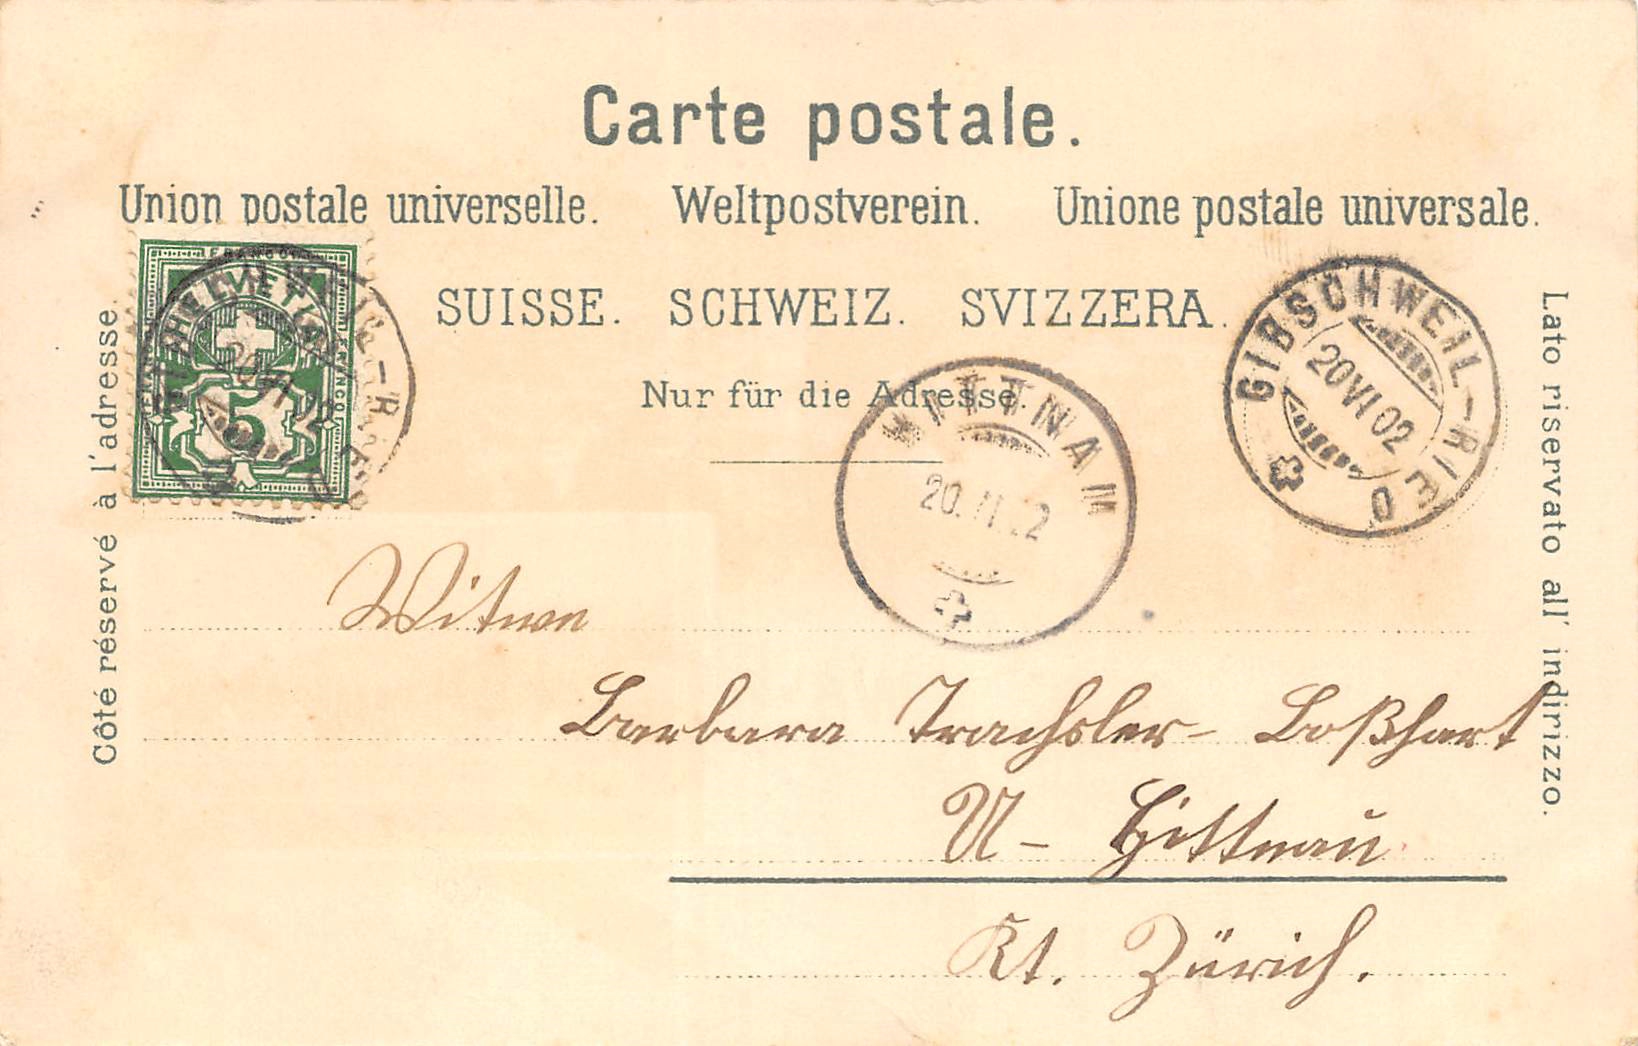 Carte postale.
Union postale universelle. Weltpostverein. Unione postale universale.
SUISSE. SCHWEIZ. SVIZZERA.
Nur für die Adresse.
Côté réservé à l'adresse.
Lato riservato all' indirizzo.
FRANCO
HELVETIA
FRANCO
5
GIBSCHWEIL-RIED
20 VI 02
HITTNAU
20. VI. 02
Witwe
Barbara Trachsler-Boßhart
U- Hittnau
Kt. Zürich.